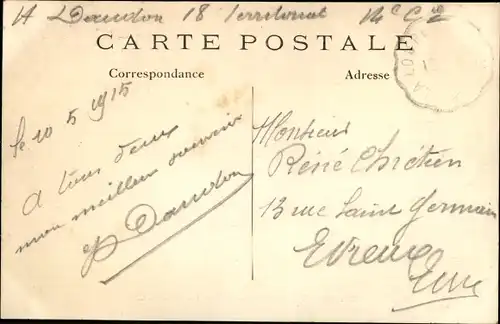 A Daudon 18 Territorial
CARTE POSTALE
Correspondance
Adresse
le 10 5 1915
A tous deux
mon meilleur souvenir
Daudon
Monsieur
René Chrétien
13 rue Saint Germain
Evreux
Eure